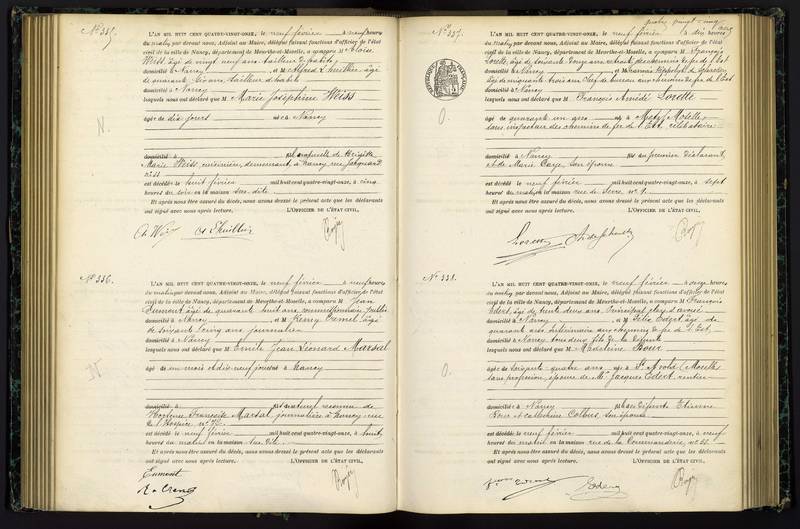 N° 335.
L'AN MIL HUIT CENT QUATRE-VINGT-ONZE, le neuf février à neuf heures
du matin par devant nous, Adjoint au Maire, délégué faisant fonctions d'officier de l'état
civil de la ville de Nancy, département de Meurthe-et-Moselle, a comparu M
Weiss, âgé de vingt neuf ans, tailleur d'habits
domicilié à Nancy et M Alfred âgé
de quarante ans, tailleur d'habits
domicilié à Nancy
lesquels nous ont déclaré que M Marie Joséphine Weiss
âgée de dix jours née à Nancy
N.
domicilié à fille naturelle de Brigitte
Marie Weiss, cuisinière, demeurant à Nancy rue
n° 11
est décédée le huit février mil huit cent quatre-vingt-onze, à cinq
heures du soir en la maison sus dite
Et après nous être assuré du décès, nous avons dressé le présent acte que les déclarants
ont signé avec nous après lecture. L'OFFICIER DE L'ÉTAT CIVIL,
N° 336.
L'AN MIL HUIT CENT QUATRE-VINGT-ONZE, le neuf février à neuf heures
du matin par devant nous, Adjoint au Maire, délégué faisant fonctions d'officier de l'état
civil de la ville de Nancy, département de Meurthe-et-Moselle, a comparu M Jean
âgé de quarante huit ans, commissionnaire public
domicilié à Nancy et M Remy âgé
de soixante cinq ans, journalier
domicilié à Nancy
lesquels nous ont déclaré que M Emile Jean Léonard Marsal
âgé de un mois et dix neuf jours né à Nancy
N
domicilié à fils naturel reconnu de
Hortense Françoise Marsal, journalière à Nancy rue
de l'Hospice n°
est décédé le neuf février mil huit cent quatre-vingt-onze, à huit
heures du matin en la maison sus dite
Et après nous être assuré du décès, nous avons dressé le présent acte que les déclarants
ont signé avec nous après lecture. L'OFFICIER DE L'ÉTAT CIVIL,
quatre vingt
N° 337.
L'AN MIL HUIT CENT QUATRE-VINGT-ONZE, le neuf février à dix heures
du matin par devant nous, Adjoint au Maire, délégué faisant fonctions d'officier de l'état
civil de la ville de Nancy, département de Meurthe-et-Moselle, a comparu M François
Lorette, âgé de soixante douze ans, retraité des chemins de fer de l'Est
domicilié à Nancy et M
âgé de cinquante trois ans, chef de bureau aux chemins de fer de l'Est
domicilié à Nancy
lesquels nous ont déclaré que M François Amédé Lorette
âgé de quarante un ans né à Metz, Moselle
sous inspecteur des chemins de fer de l'Est, célibataire
O.
domicilié à Nancy fils du premier déclarant,
et de Marie son épouse
est décédé le neuf février mil huit cent quatre-vingt-onze, à sept
heures du matin en la maison rue de Serre n° 9
Et après nous être assuré du décès, nous avons dressé le présent acte que les déclarants
ont signé avec nous après lecture. L'OFFICIER DE L'ÉTAT CIVIL,
N° 338.
L'AN MIL HUIT CENT QUATRE-VINGT-ONZE, le neuf février à onze heures
du matin par devant nous, Adjoint au Maire, délégué faisant fonctions d'officier de l'état
civil de la ville de Nancy, département de Meurthe-et-Moselle, a comparu M François
âgé de trente deux ans, principal clerc d'avoué
domicilié à Nancy et M Félix âgé de
quarante ans, aux chemins de fer de l'Est,
domicilié à Nancy tous deux fils de la défunte
lesquels nous ont déclaré que M Madeleine Bour
âgée de soixante quatre ans née à St Avold (Moselle)
sans profession, épouse de Mr Jacques rentier
O.
domiciliée à Nancy fille des défunts Etienne
Bour et Catherine Colbus, son épouse
est décédée le neuf février mil huit cent quatre-vingt-onze, à neuf
heures du matin en la maison rue de la Commanderie, n°
Et après nous être assuré du décès, nous avons dressé le présent acte que les déclarants
ont signé avec nous après lecture. L'OFFICIER DE L'ÉTAT CIVIL,